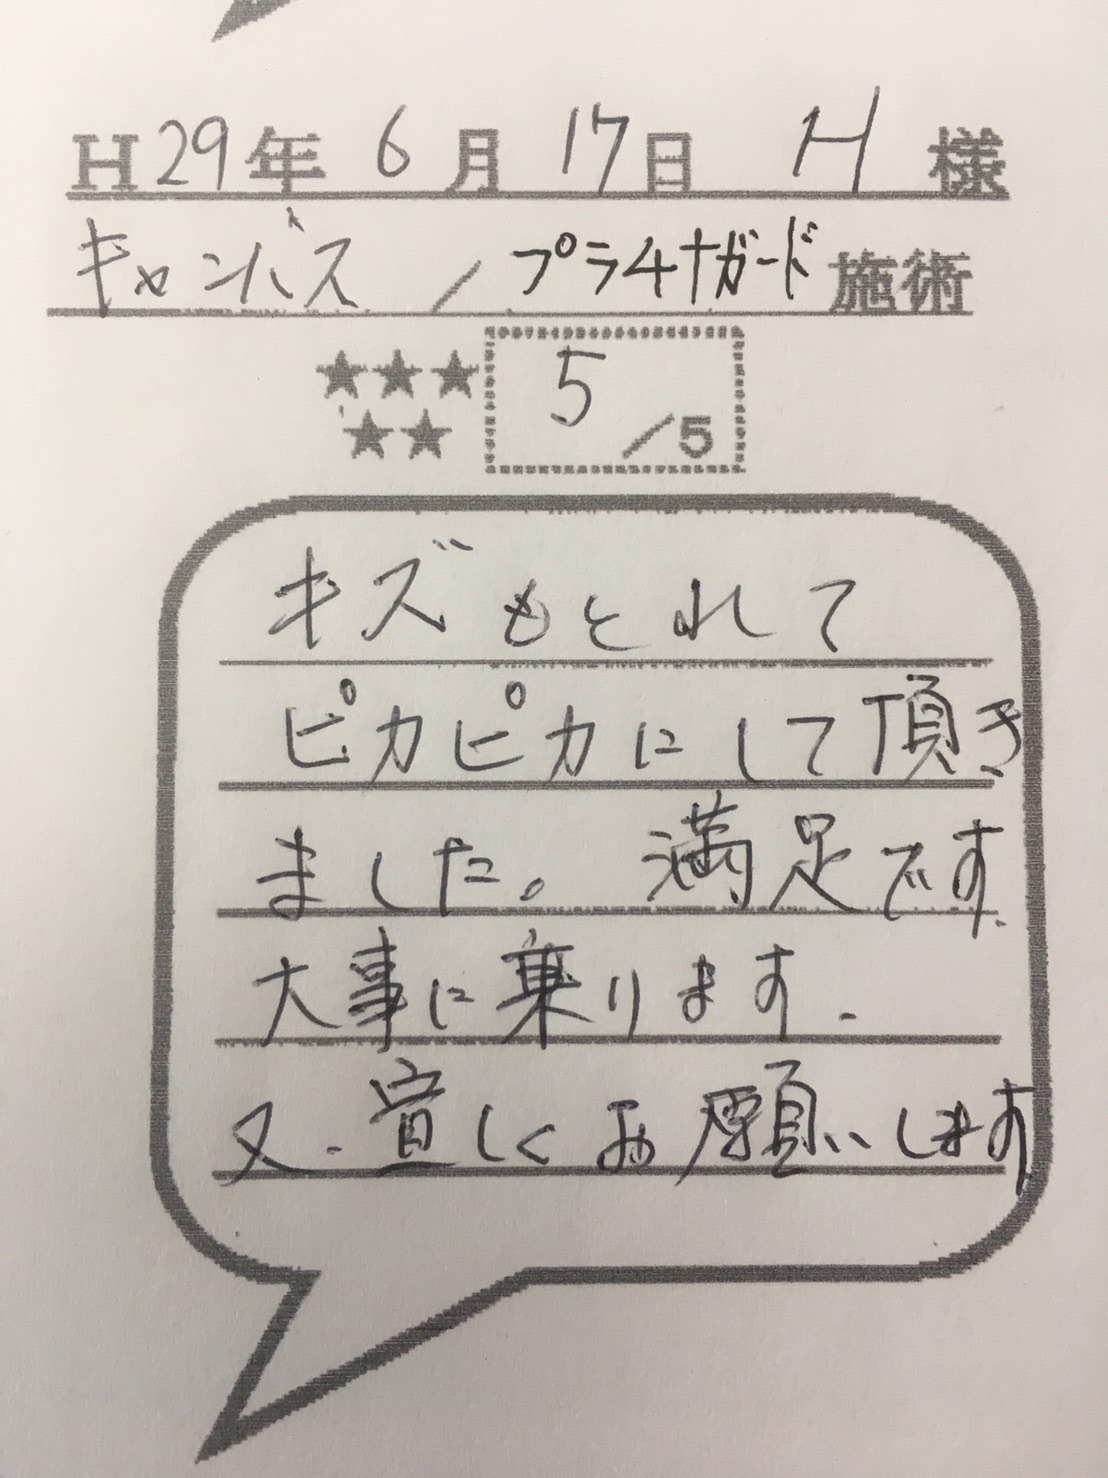 H29年 6月 17日 H 様
キャンバス / プラチナガード 施術
★★★
★★
5/5
キズもとれて
ピカピカにして頂き
ました。満足です.
大事に乗ります.
又.宜しくお願いします